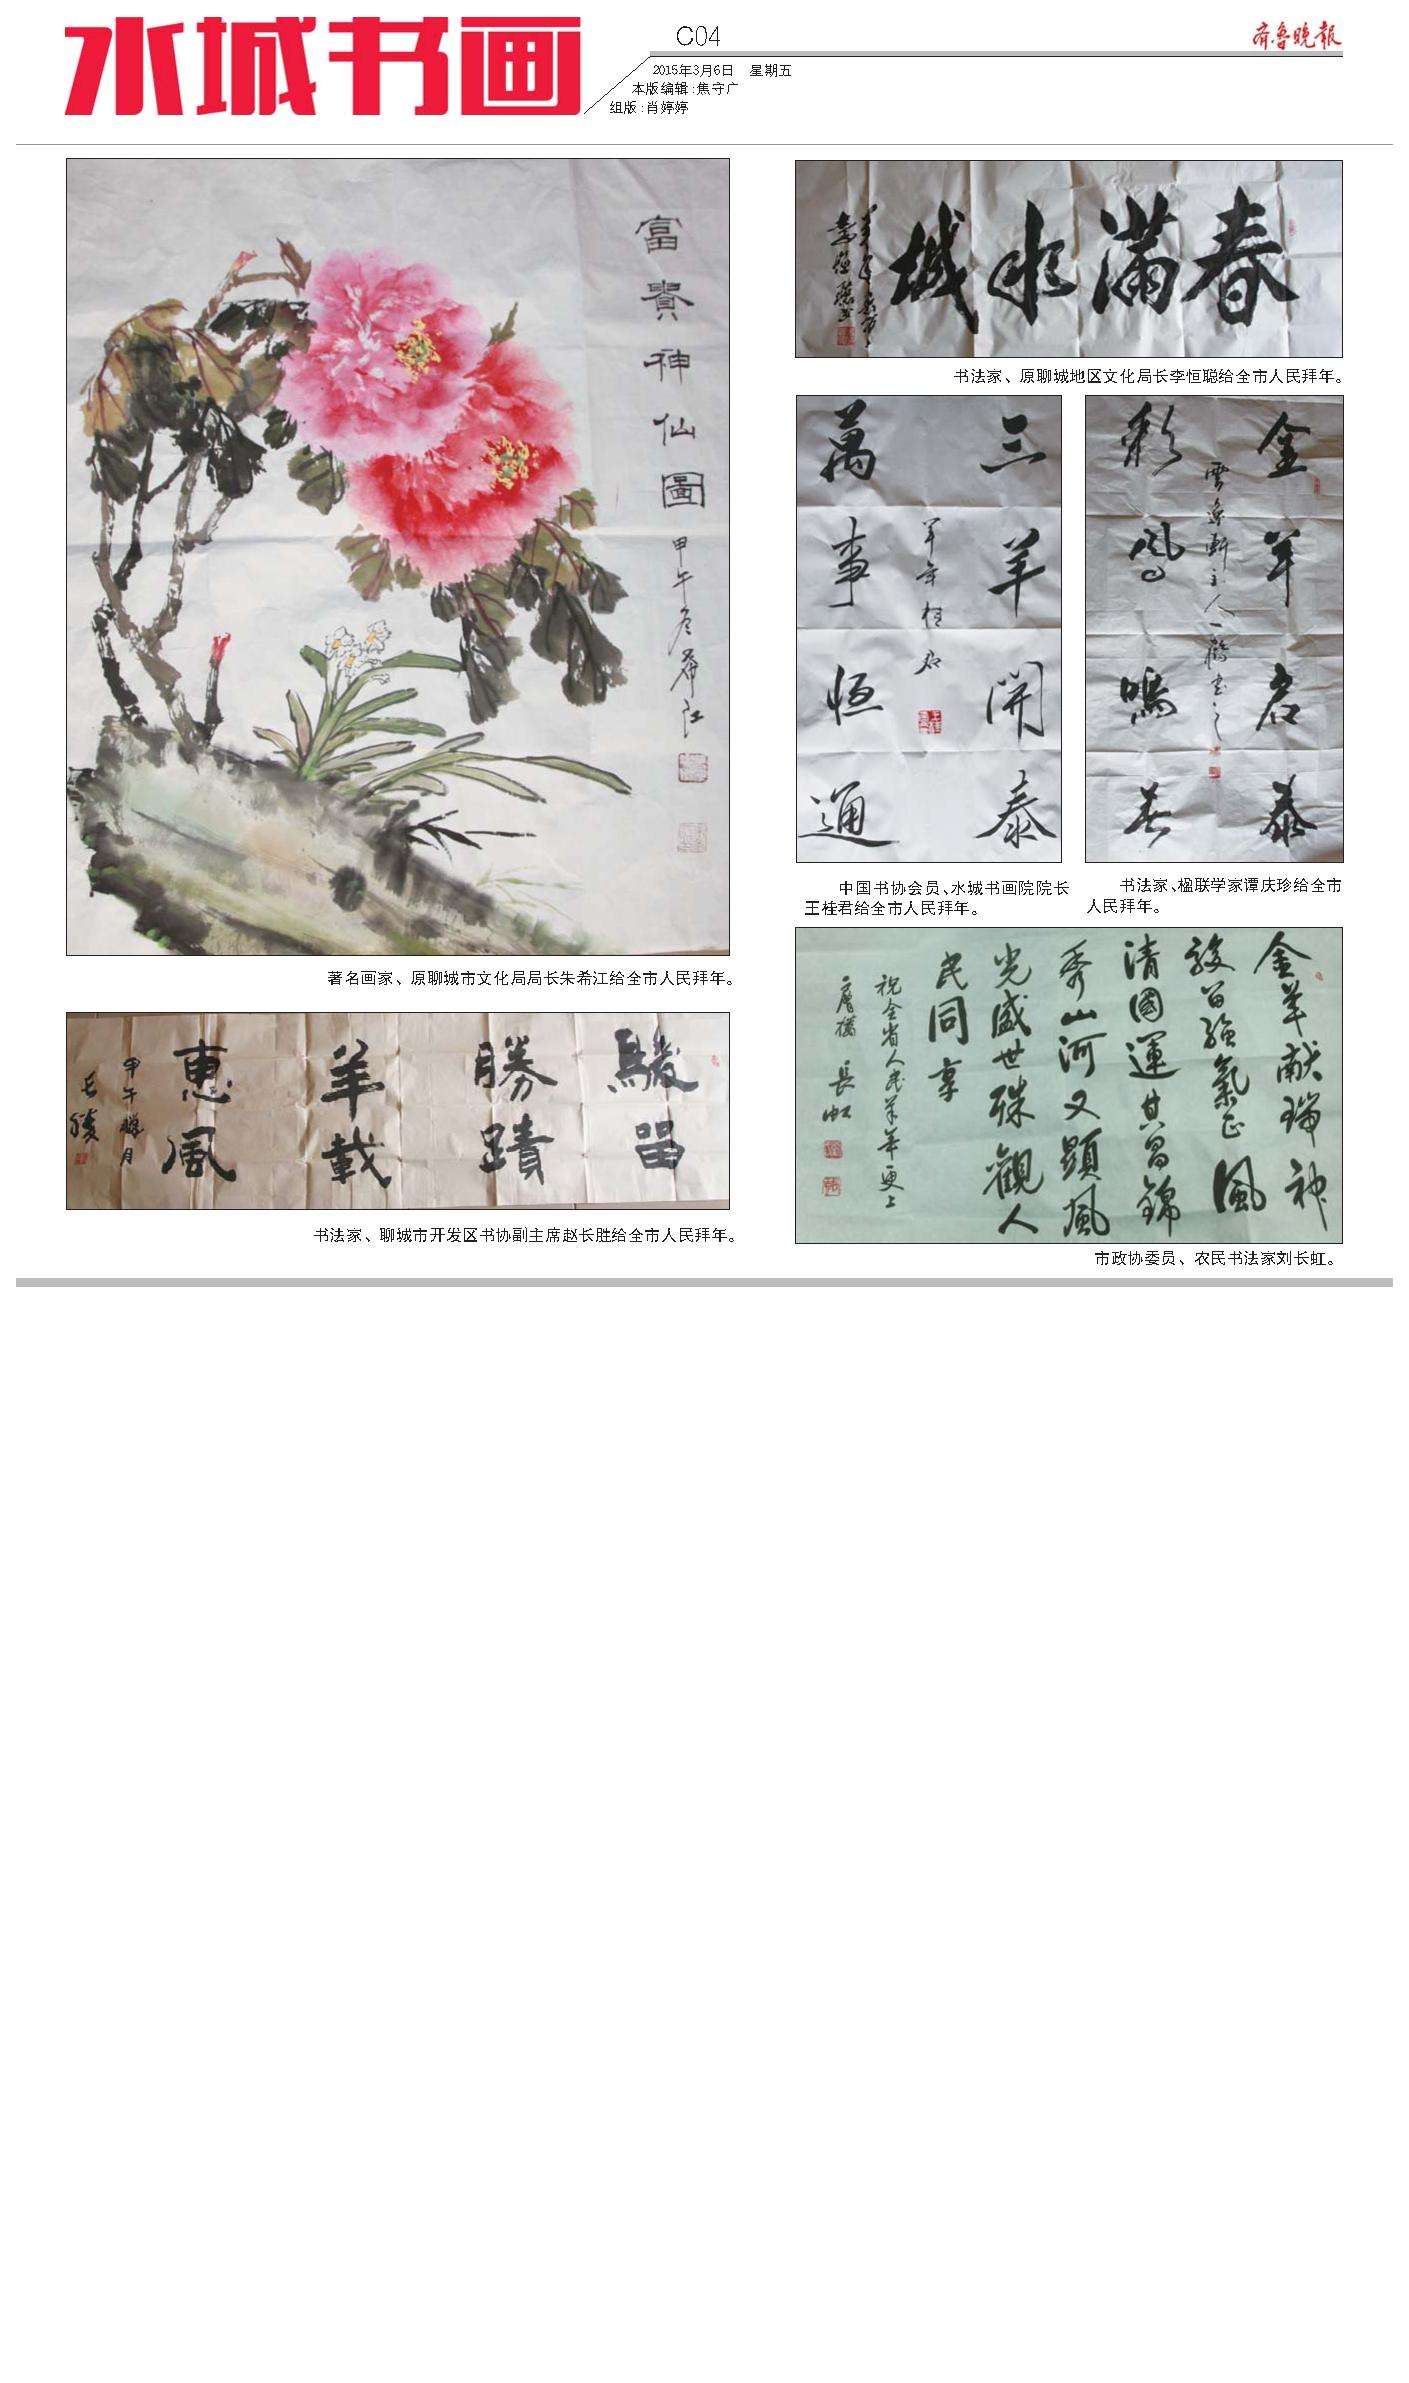 水城书画
C04
齐鲁晚报
2015年3月6日 星期五
本版编辑:焦守广
组版:肖婷婷
富貴神仙圖
甲午冬希江
著名画家、原聊城市文化局局长朱希江给全市人民拜年。
駿留
勝蹟
羊載
惠風
甲午臘月
长勝
书法家、聊城市开发区书协副主席赵长胜给全市人民拜年。
春满水城
书法家、原聊城地区文化局长李恒聪给全市人民拜年。
三羊開泰
萬事恒通
羊年桂君
中国书协会员、水城书画院院长
王桂君给全市人民拜年。
金羊启泰
彩鳳鳴春
书法家、楹联学家谭庆珍给全市
人民拜年。
金羊献瑞神
駿留強氣正風
清國運其昌錦
秀山河又顯風
光盛世殊觀人
民同享
祝全省人民羊年更上
一層樓 長虹
市政协委员、农民书法家刘长虹。